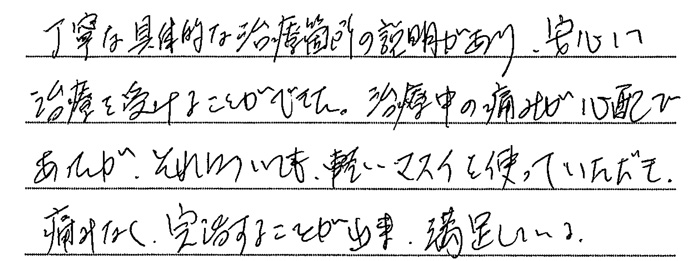 丁寧な具体的な治療箇所の説明があり、安心して
治療を受けることができた。治療中の痛みが心配で
あったが、それについても、軽いマスイを使っていただき、
痛みなく、完治することが出来、満足している。